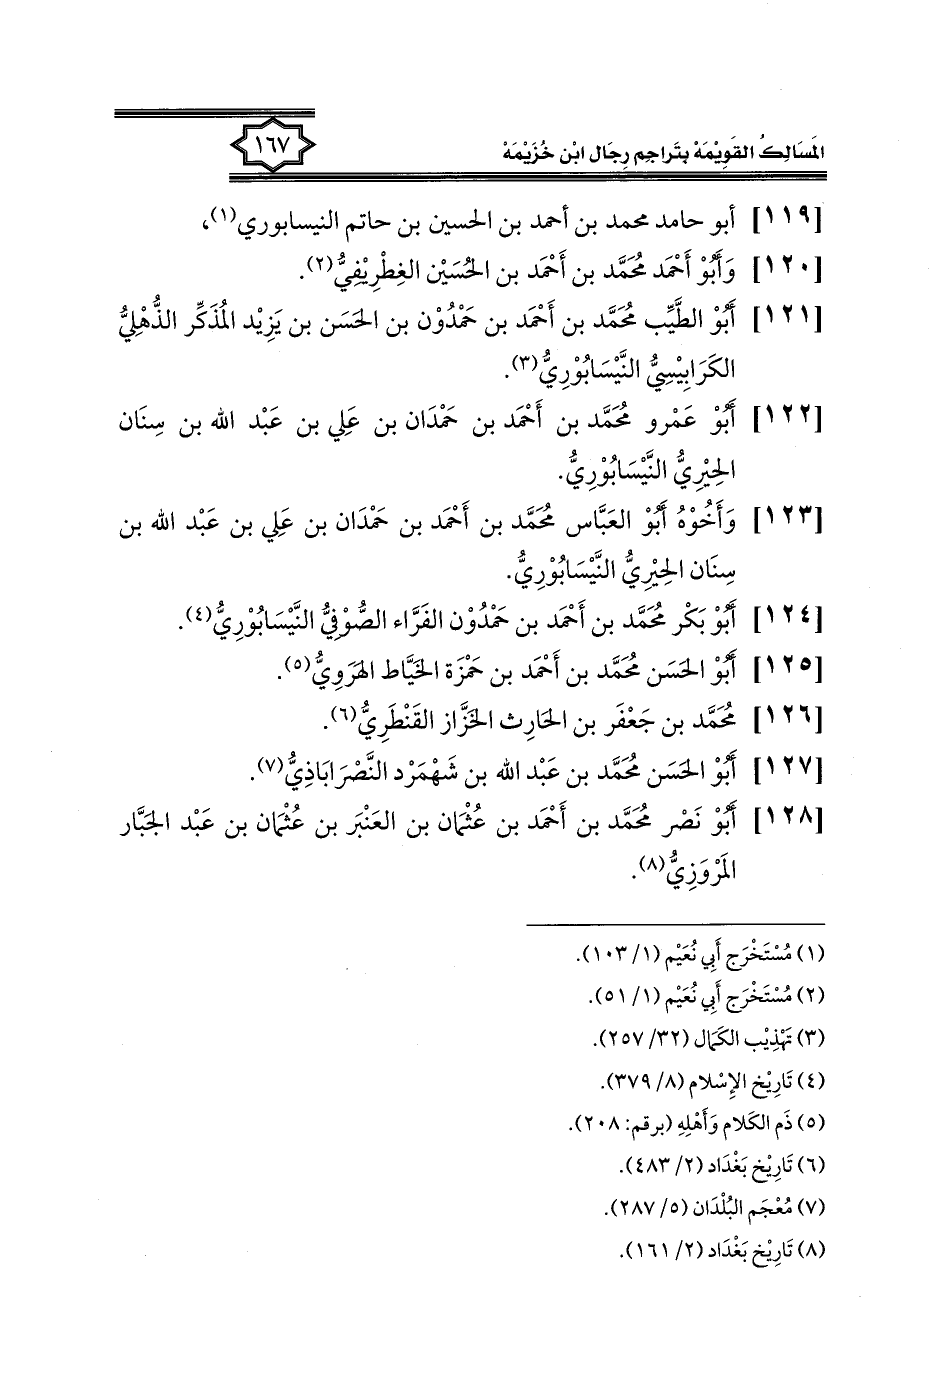 المَسَالِكُ القَوِيْمَهْ بِتَرَاجِمِ رِجَالِ ابْنِ خُزَيْمَهْ
١٦٧
[١١٩] أبو حامد محمد بن أحمد بن الحسين بن حاتم النيسابوري(١)،
[١٢٠] وَأَبُوْ أَحْمَد مُحَمَّد بن أَحْمَد بن الحُسَيْن الغِطْرِيْفِيُّ(٢).
[١٢١] أَبُوْ الطَّيِّب مُحَمَّد بن أَحْمَد بن حَمْدُوْن بن الحَسَن بن يَزِيْد المُذَكِّر الذُّهْلِيُّ
الكَرَابِيْسِيُّ النَّيْسَابُوْرِيُّ(٣).
[١٢٢] أَبُوْ عَمْرو مُحَمَّد بن أَحْمَد بن حَمْدَان بن عَلِي بن عَبْد الله بن سِنَان
الحِيْرِيُّ النَّيْسَابُوْرِيُّ.
[١٢٣] وَأَخُوْهُ أَبُوْ العَبَّاس مُحَمَّد بن أَحْمَد بن حَمْدَان بن عَلِي بن عَبْد الله بن
سِنَان الحِيْرِيُّ النَّيْسَابُوْرِيُّ.
[١٢٤] أَبُوْ بَكْر مُحَمَّد بن أَحْمَد بن حَمْدُوْن الفَرَّاء الصُّوْفِيُّ النَّيْسَابُوْرِيُّ(٤).
[١٢٥] أَبُوْ الحَسَن مُحَمَّد بن أَحْمَد بن حَمْزَة الخَيَّاط الهَرَوِيُّ(٥).
[١٢٦] مُحَمَّد بن جَعْفَر بن الحَارِث الخَزَّاز القَنْطَرِيُّ(٦).
[١٢٧] أَبُوْ الحَسَن مُحَمَّد بن عَبْد الله بن شَهْمَرْد النَّصْرَابَاذِيُّ(٧).
[١٢٨] أَبُوْ نَصْر مُحَمَّد بن أَحْمَد بن عُثْمَان بن العَنْبَر بن عُثْمَان بن عَبْد الجَبَّار
المَرْوَزِيُّ(٨).
(١) مُسْتَخْرَج أَبِي نُعَيْم (١/ ١٠٣).
(٢) مُسْتَخْرَج أَبِي نُعَيْم (١/ ٥١).
(٣) تَهْذِيْب الكَمَال (٣٢/ ٢٥٧).
(٤) تَارِيْخ الإِسْلام (٨/ ٣٧٩).
(٥) ذَم الكَلام وَأَهْلِهِ (برقم: ٢٠٨).
(٦) تَارِيْخ بَغْدَاد (٢/ ٤٨٣).
(٧) مُعْجَم البُلْدَان (٥/ ٢٨٧).
(٨) تَارِيْخ بَغْدَاد (٢/ ١٦١).